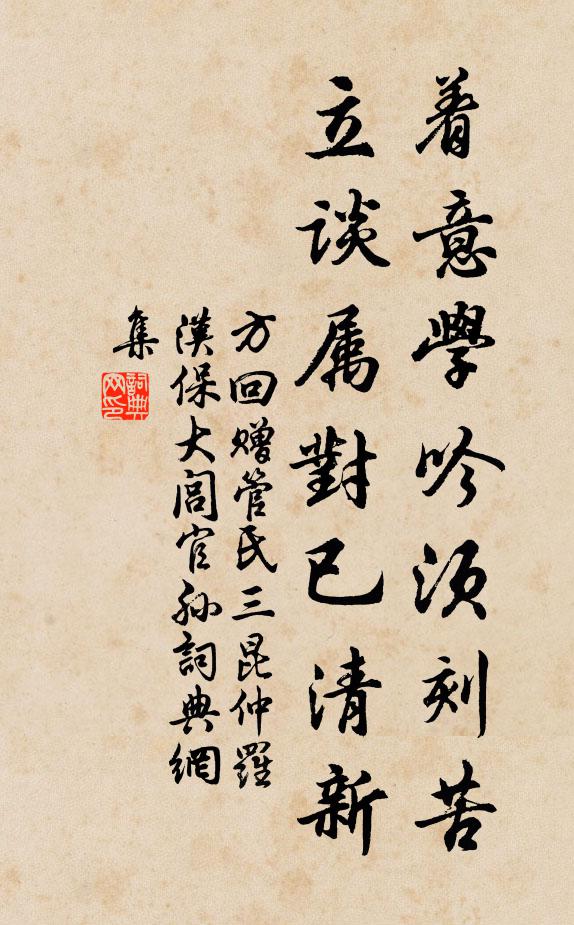 着意學吟須刻苦
立談属對已清新
方回贈管氏三昆仲羅
漢保大閭官孫詞典網
集
詞典
网印